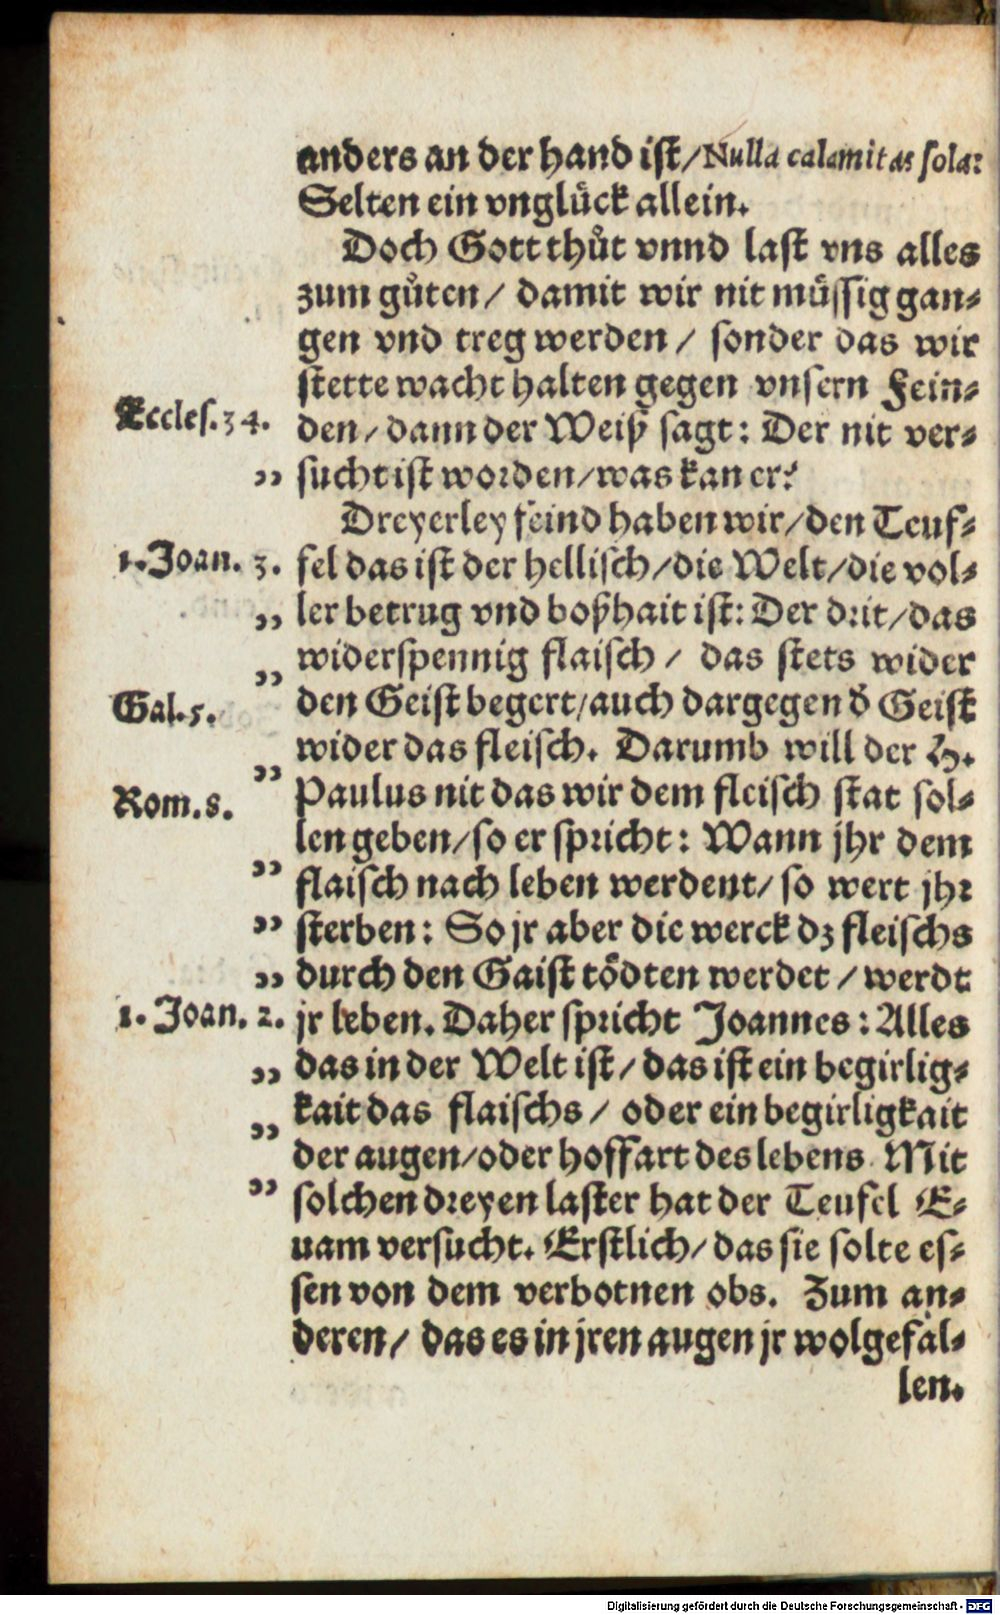 anders an der hand ist/ Nulla calamitas sola:
Selten ein vnglück allein.
Doch Gott thůt vnnd last vns alles
zum gůten/ damit wir nit müssig gan-
gen vnd treg werden/ sonder das wir
stette wacht halten gegen vnsern Fein-
Eccles.34. den/ dann der Weiß sagt: Der nit ver-
„ sucht ist worden/ was kan er?
Dreyerley feind haben wir/ den Teuf-
1. Joan. 3. fel das ist der hellisch/ die Welt/ die vol-
„ ler betrug vnd boßhait ist: Der drit/ das
„ widerspennig flaisch/ das stets wider
Gal.5. den Geist begert/ auch dargegen d̄ Geist
„ wider das fleisch. Darumb will der H.
Rom.8. Paulus nit das wir dem fleisch stat sol-
len geben/ so er spricht: Wann jhr dem
„ flaisch nach leben werdent/ so wert jhr
„ sterben: So jr aber die werck dz fleischs
„ durch den Gaist tödten werdet/ werdt
1. Joan. 2. jr leben. Daher spricht Joannes: Alles
„ das in der Welt ist/ das ist ein begirlig-
„ kait das flaischs/ oder ein begirligkait
der augen/ oder hoffart des lebens. Mit
„ solchen dreyen laster hat der Teufel E-
uam versucht. Erstlich/ das sie solte es-
sen von dem verbotnen obs. Zum an-
deren/ das es in jren augen jr wolgefal-
len.
Digitalisierung gefördert durch die Deutsche Forschungsgemeinschaft - DFG